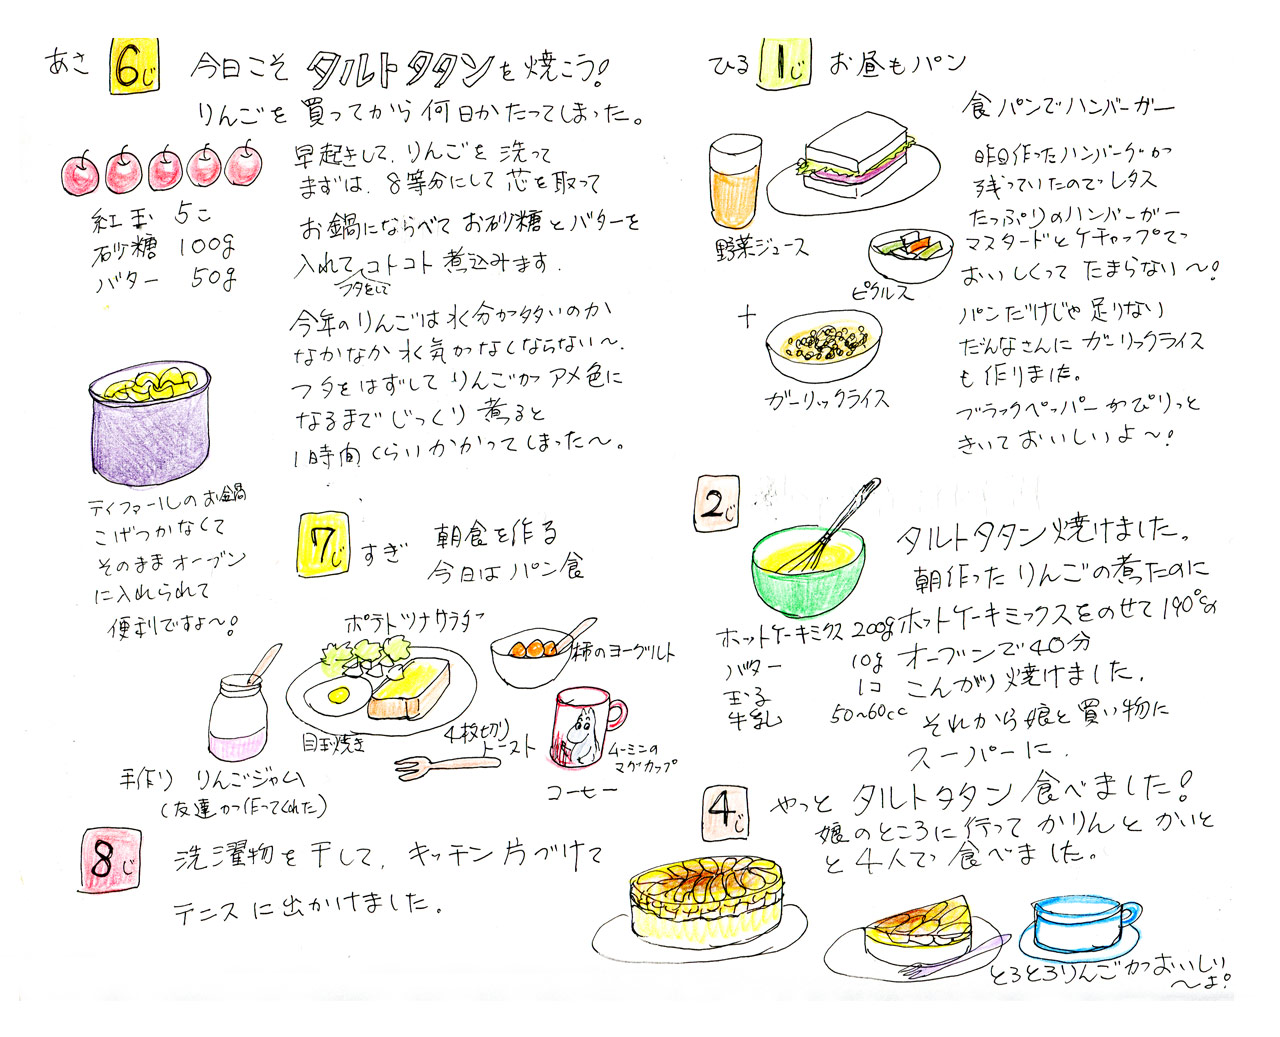 あさ 6じ 今日こそ タルトタタンを焼こう!
りんごを買ってから何日かたってしまった。
早起きして、りんごを洗って
まずは、8等分にして芯を取って
お鍋にならべてお砂糖とバターを
入れてコトコト煮込みます.
フタをして
紅玉 5こ
砂糖 100g
バター 50g
今年のりんごは水分が多いのか
なかなか水気がなくならない〜.
フタをはずしてりんごがアメ色に
なるまでじっくり煮ると
1時間くらいかかってしまった〜。
ティファールのお鍋
こげつかなくて
そのままオーブン
に入れられて
便利ですよ〜!
7じ すぎ 朝食を作る
今日はパン食
ポテトツナサラダ
柿のヨーグルト
目玉焼き
4枚切り
トースト
ムーミンの
マグカップ
コーヒー
手作り りんごジャム
(友達が作ってくれた)
8じ 洗濯物を干して、キッチン片づけて
テニスに出かけました。
ひる 1じ お昼もパン
食パンでハンバーガー
昨日作ったハンバーグが
残っていたのでレタス
たっぷりのハンバーガー
マスタードとケチャップで
おいしくって たまらない〜!
野菜ジュース
ピクルス
+
ガーリックライス
パンだけじゃ足りない
だんなさんにガーリックライス
も作りました。
ブラックペッパーがぴりっと
きいておいしいよ〜!
2じ
タルトタタン焼けました。
朝作ったりんごの煮たのに
ホットケーキミックスをのせて190℃の
オーブンで40分
こんがり焼けました.
それから娘と買い物に
スーパーに.
ホットケーキミクス 200g
バター 10g
玉子 1コ
牛乳 50~60cc
4じ やっと タルトタタン 食べました!
娘のところに行って かりんとかいと
と4人で食べました。
とろとろりんごがおいしい
〜よ!